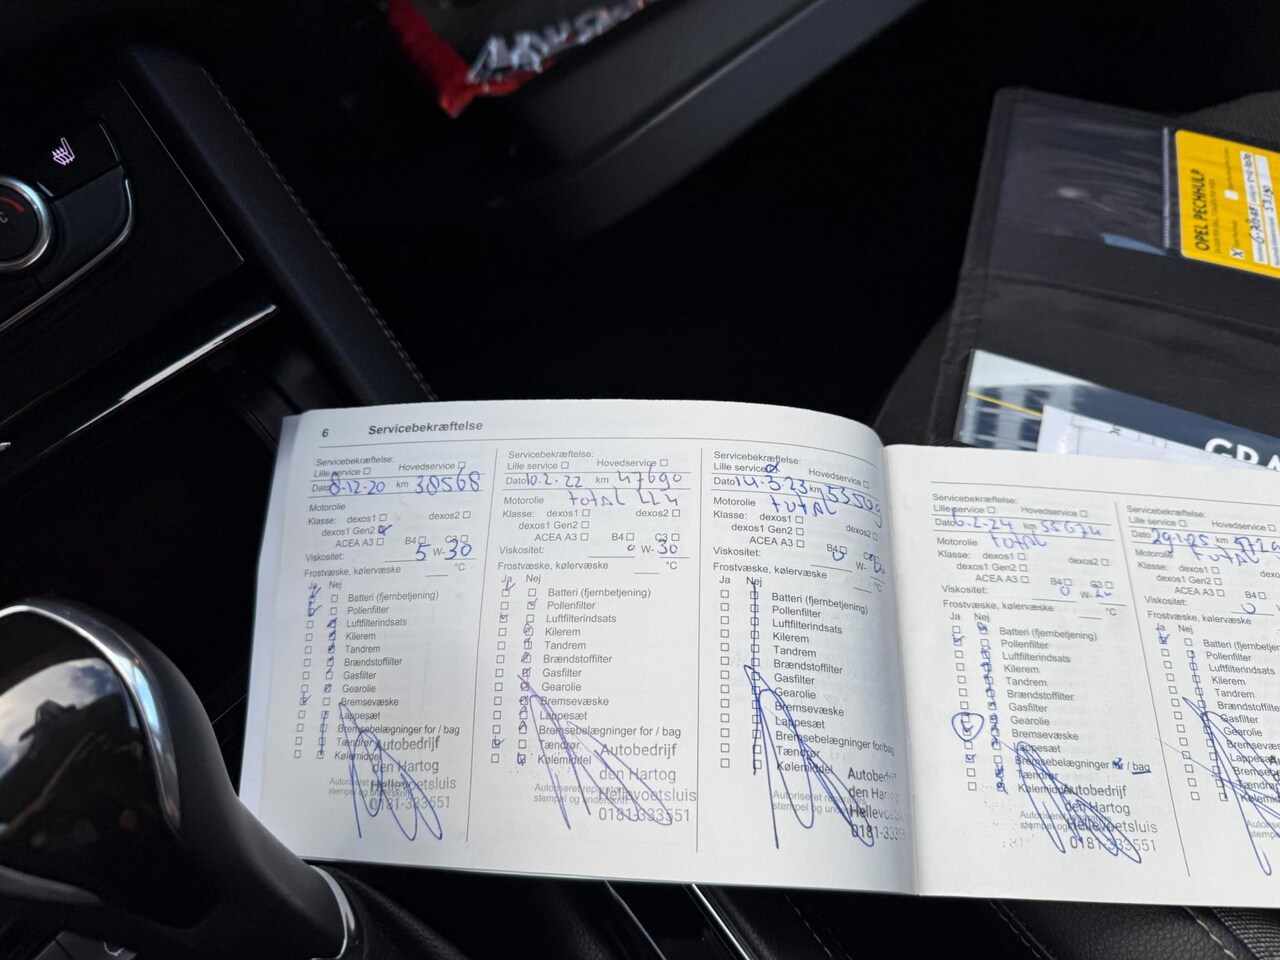 OPEL PECHHULP
GRA
6 Servicebekræftelse
Servicebekræftelse:
Lille service Hovedservice
Dato 8-12-20 km 38568
Motorolie
Klasse: dexos1 dexos2
dexos1 Gen2
ACEA A3 B4 C3
Viskositet: 5 W- 30
Frostvæske, kølervæske °C
Ja Nej
Batteri (fjernbetjening)
Pollenfilter
Luftfilterindsats
Kilerem
Tandrem
Brændstoffilter
Gasfilter
Gearolie
Bremsevæske
Lappesæt
Bremsebelægninger for / bag
Tændrør
Kølemiddel
Autobedrijf
den Hartog
Hellevoetsluis
0181-333551
Servicebekræftelse:
Lille service Hovedservice
Dato 10-2-22 km 47690
Motorolie total
Klasse: dexos1 dexos2
dexos1 Gen2
ACEA A3 B4 C3
Viskositet: 0 W- 30
Frostvæske, kølervæske °C
Ja Nej
Batteri (fjernbetjening)
Pollenfilter
Luftfilterindsats
Kilerem
Tandrem
Brændstoffilter
Gasfilter
Gearolie
Bremsevæske
Lappesæt
Bremsebelægninger for / bag
Tændrør
Kølemiddel
Autobedrijf
den Hartog
Hellevoetsluis
Autoriseret reparatørs
stempel og underskrift
0181-333551
Servicebekræftelse:
Lille service Hovedservice
Dato 14-3-23 km 53509
Motorolie total
Klasse: dexos1 dexos2
dexos1 Gen2
ACEA A3 B4
Viskositet: 0 W-
Frostvæske, kølervæske °C
Ja Nej
Batteri (fjernbetjening)
Pollenfilter
Luftfilterindsats
Kilerem
Tandrem
Brændstoffilter
Gasfilter
Gearolie
Bremsevæske
Lappesæt
Bremsebelægninger for/bag
Tændrør
Kølemiddel
Autobed
den Har
Hellevo
0181-333
Servicebekræftelse:
Lille service Hovedservice
Dato 6-2-24 km 55674
Motorolie total
Klasse: dexos1 dexos2
dexos1 Gen2
ACEA A3 B4 C3
Viskositet: 0 W- 20
Frostvæske, kølervæske °C
Ja Nej
Batteri (fjernbetjening)
Pollenfilter
Luftfilterindsats
Kilerem
Tandrem
Brændstoffilter
Gasfilter
Gearolie
Bremsevæske
Lappesæt
Bremsebelægninger / bag
Tændrør
Kølemiddel
Autobedrijf
den Hartog
Hellevoetsluis
0181-333551
Servicebekræftelse:
Lille service Hovedservice
Dato 29-1-25 km
Motorolie total
Klasse: dexos1
dexos1 Gen2
ACEA A3
Viskositet: 0
Frostvæske, kølervæske
Ja Nej
Batteri (fjernbetjening)
Pollenfilter
Luftfilterindsats
Kilerem
Tandrem
Brændstoffilter
Gasfilter
Gearolie